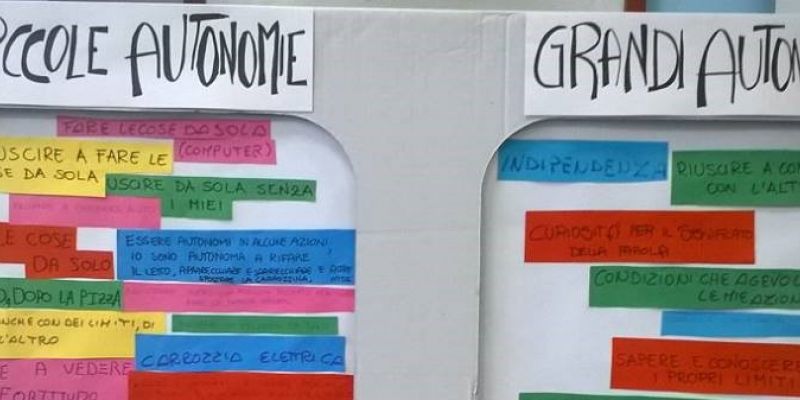 CCOLE AUTONOMIE
FARE LE COSE DA SOLA
(COMPUTER)
USCIRE A FARE LE
SE DA SOLA
USCIRE DA SOLA SENZA
I MIEI
LE COSE
DA SOLO
ESSERE AUTONOMI IN ALCUNE AZIONI
IO SONO AUTONOMA A RIFARE
IL LETTO, APPARECCHIARE E SPARECCHIARE E
SPOSTARE LA CARROZZINA,
DOPO LA PIZZA
ANCHE CON DEI LIMITI, DI
L'ALTRO
CARROZZIA ELETTRICA
E A VEDERE
FORTITUDO
GRANDI AUTON
INDIPENDENZA
RIUSCIRE A CO
CON L'ALT
CURIOSITÀ PER IL SIGNIFICATO
DELLA PAROLA
CONDIZIONI CHE AGEVOL
LE MIE AZION
SAPERE E CONOSCERE
I PROPRI LIMITI